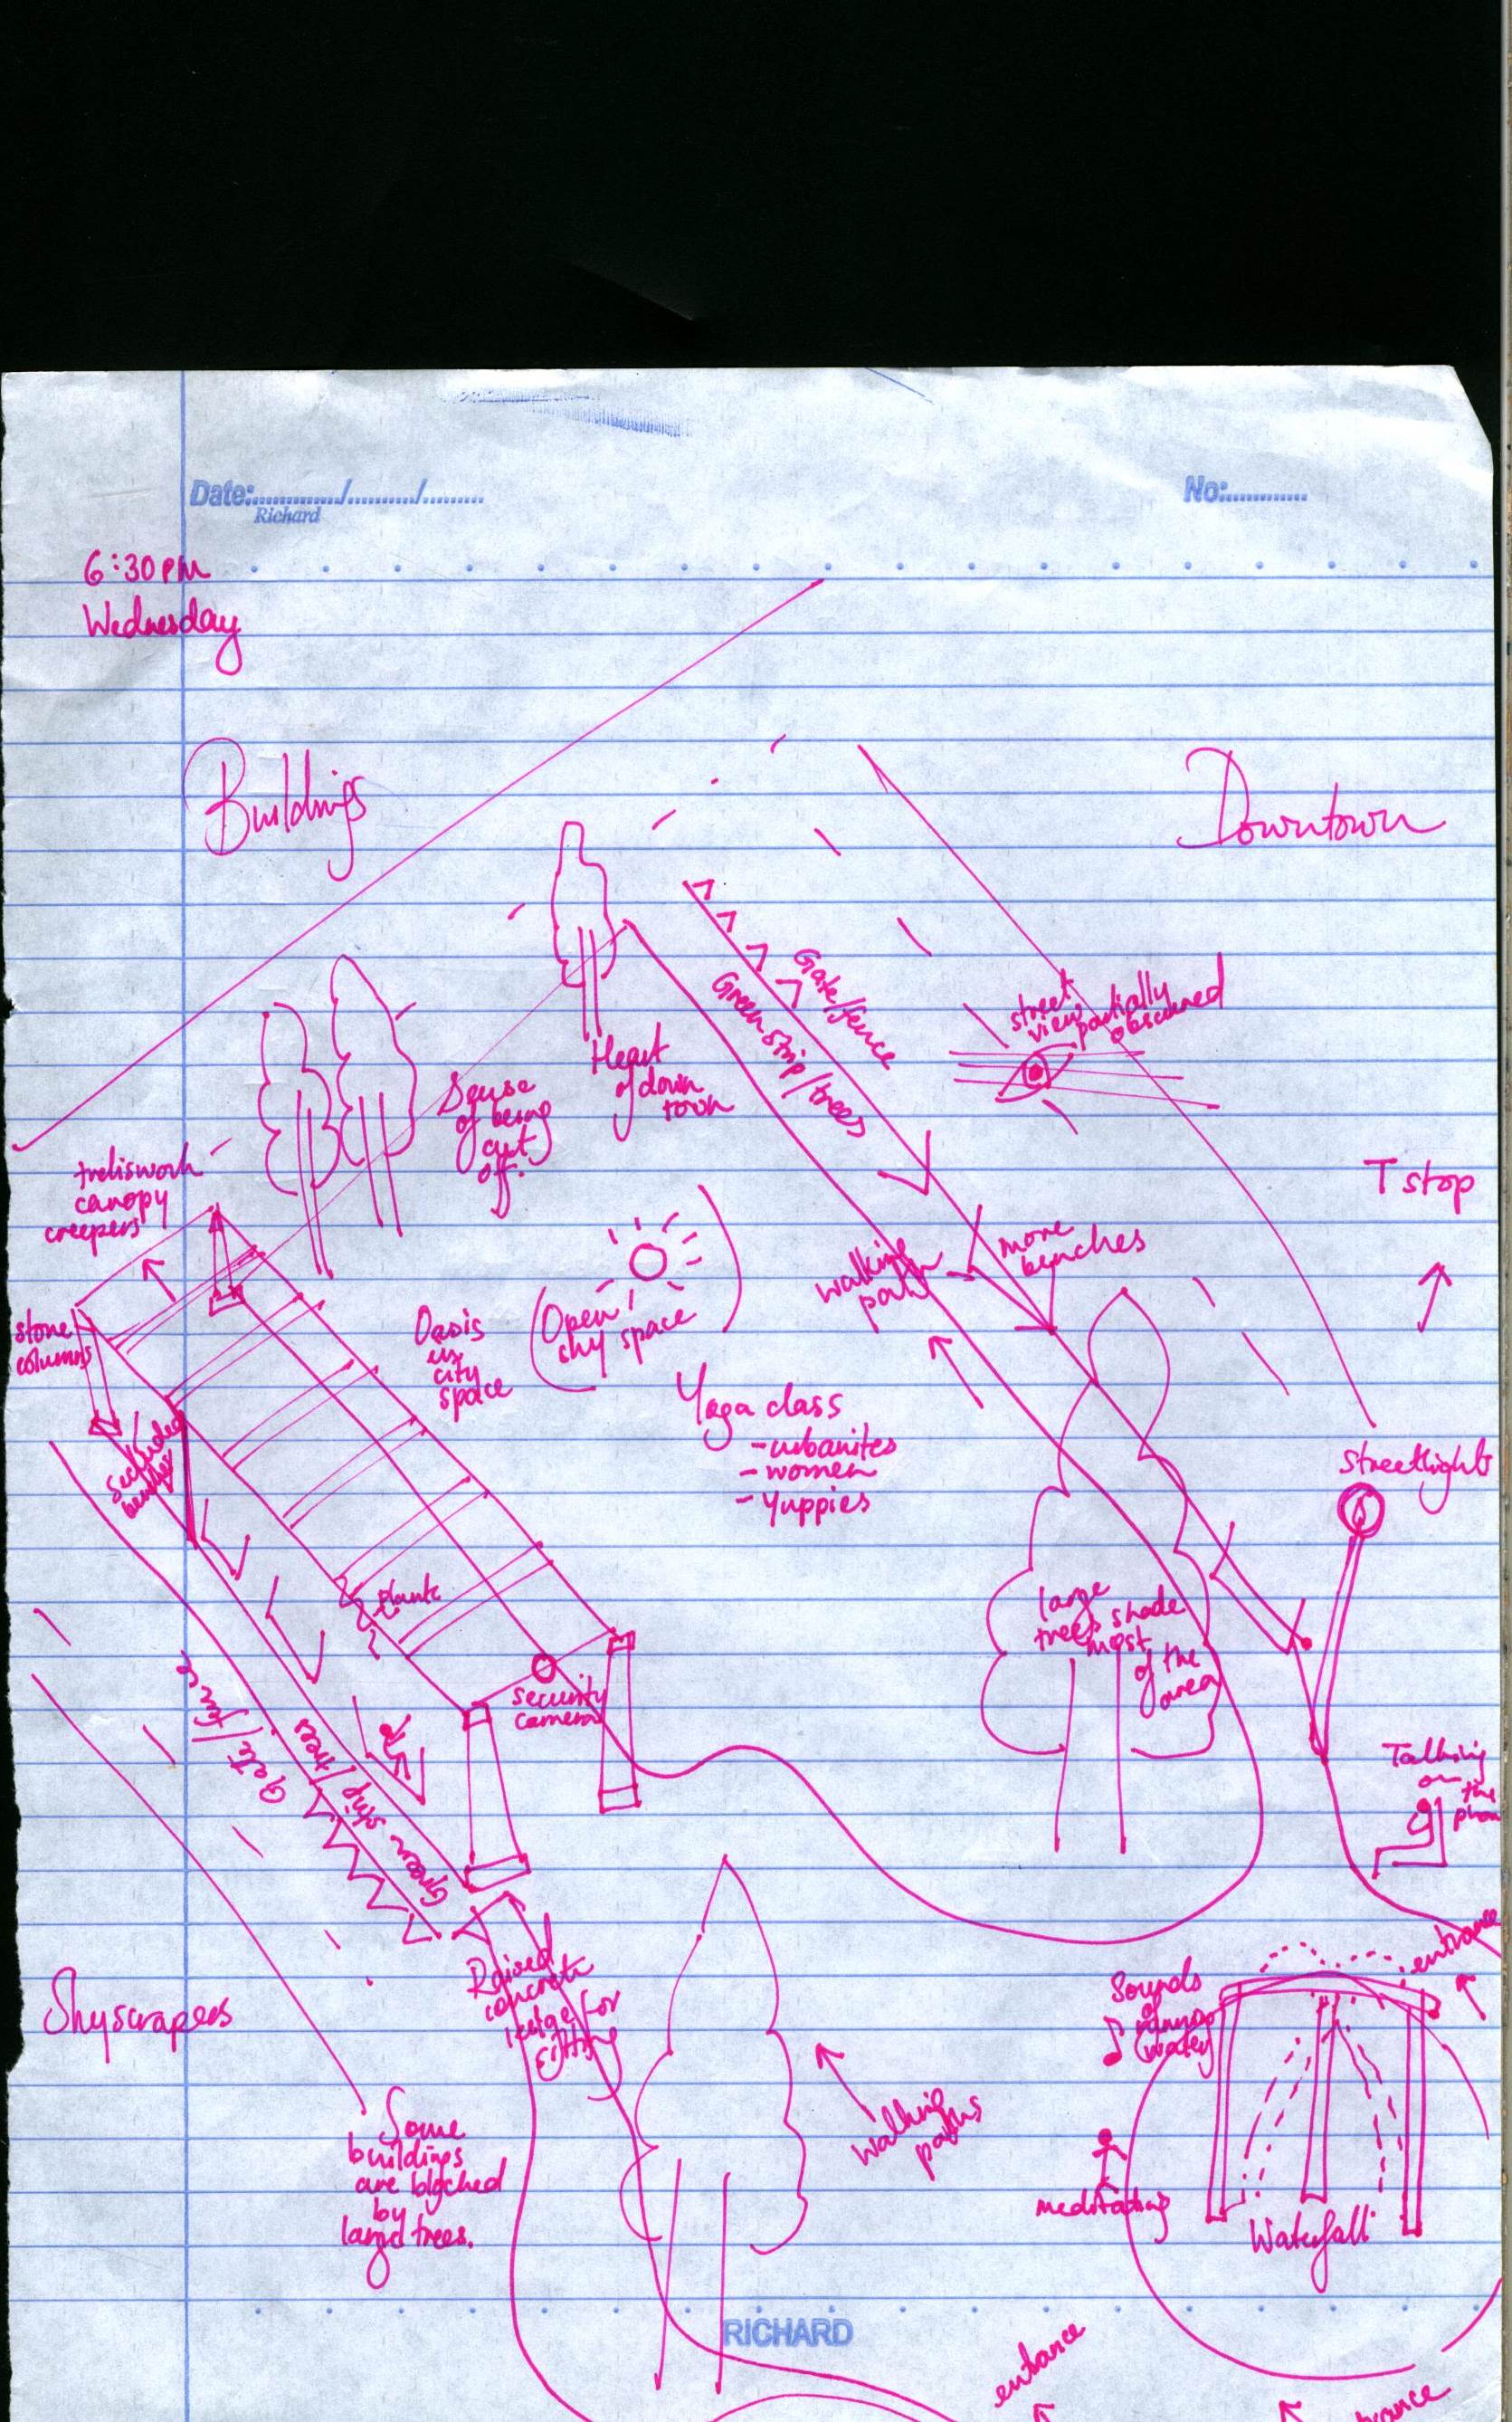 Date:............./........../.........
Richard
No:............
6:30 PM
Wednesday
Buildings
Downtown
Gate/fence
Green strip/trees
street
view partially
obscured
Heart
of down
town
Sense
of being
cut
off.
treliswork
canopy
creepers
T stop
more
benches
walking
path
stone
columns
Oasis
in
city
space
Open
sky space
Yoga class
- urbanites
- women
- yuppies
secluded
benches
streetlights
plants
large
trees shade
most
of the
area
security
camera
Gate/fence
Green strip/trees
Talking
on
the
phone
Raised
concrete
ledge for
sitting
entrance
Sounds
of
running
water
Skyscrapers
Some
buildings
are blocked
by
large trees.
walking
paths
meditating
Waterfall
RICHARD
entrance